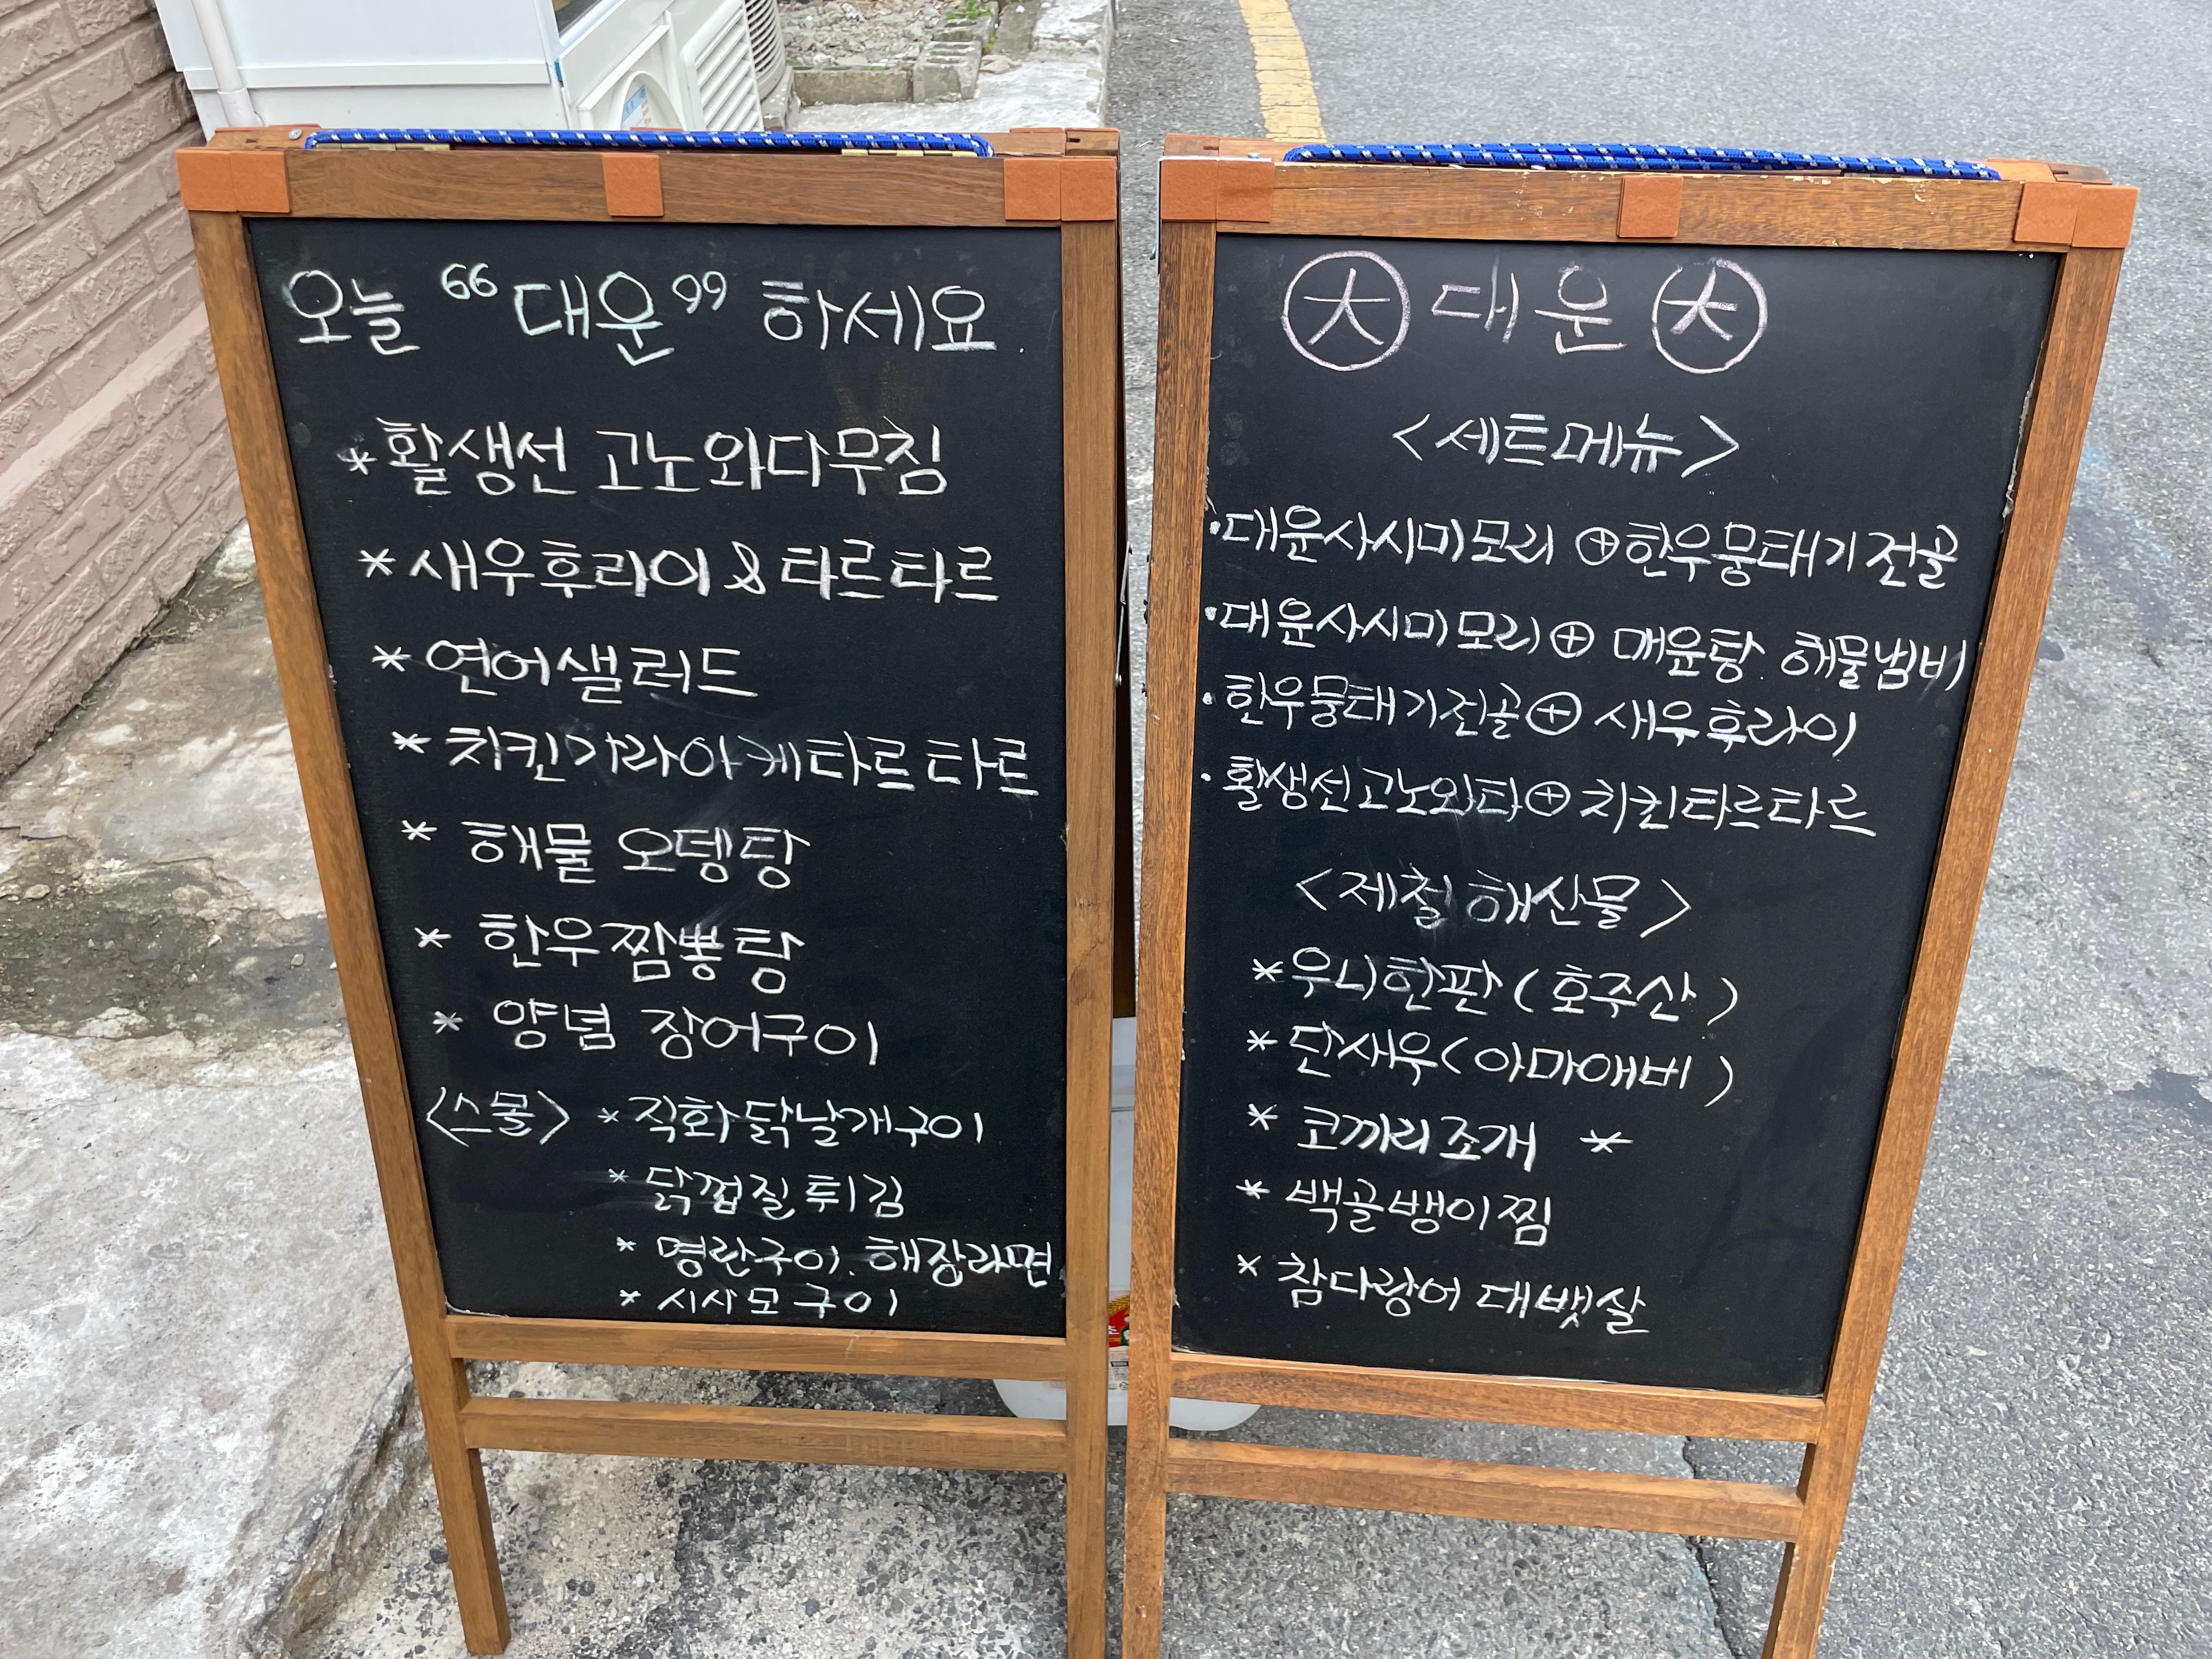 오늘 "대운" 하세요.
* 활생선 고노와다무침
* 새우후라이 & 타르타르
* 연어샐러드
* 치킨가라아게타르타르
* 해물 오뎅탕
* 한우짬뽕탕
* 양념 장어구이
<스몰> * 직화닭날개구이
* 닭껍질튀김
* 명란구이. 해장라면
* 시사모구이
大 대운 大
<세트메뉴>
·대운사시미모리 ⊕ 한우뭉태기전골
·대운사시미모리 ⊕ 매운탕. 해물냄비
·한우뭉태기전골 ⊕ 새우후라이
·활생선고노와타 ⊕ 치킨타르타르
<제철해산물>
* 우니한판 (호주산)
* 단새우 (아마애비)
* 코끼리조개 *
* 백골뱅이찜
* 참다랑어 대뱃살